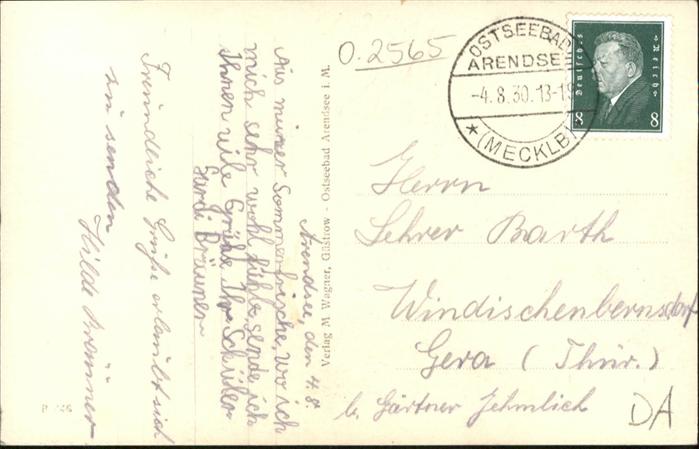 O.2565
OSTSEEBAD
ARENDSEE
-4.8.30.13-1
(MECKLB)
Deutsches Reich
8 8
Verlag M. Wagner, Güstrow - Ostseebad Arendsee i. M.
Arendsee, den 4.8.
Aus meiner Sommerfrische, wo ich
mich sehr wohl fühle, sende ich
Ihnen viele Grüße Ihr Schüler
Gerdi Brünner
Freundliche Grüße erlaubt sich
zu senden
Hilde Brünner.
Herrn
Lehrer Barth
Windischenbernsdorf
Gera (Thür.)
b. Gärtner Jehmlich
DA